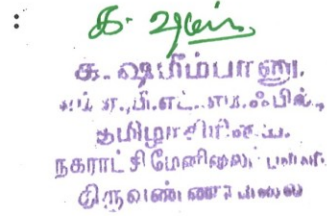 :
க.
க. ஷமீம்பானு,
எம்.ஏ.,பி.எட்.,எம்.ஃபில்.,
தமிழாசிரியை,
நகராட்சிமேனிலைப் பள்ளி
திருவண்ணாமலை